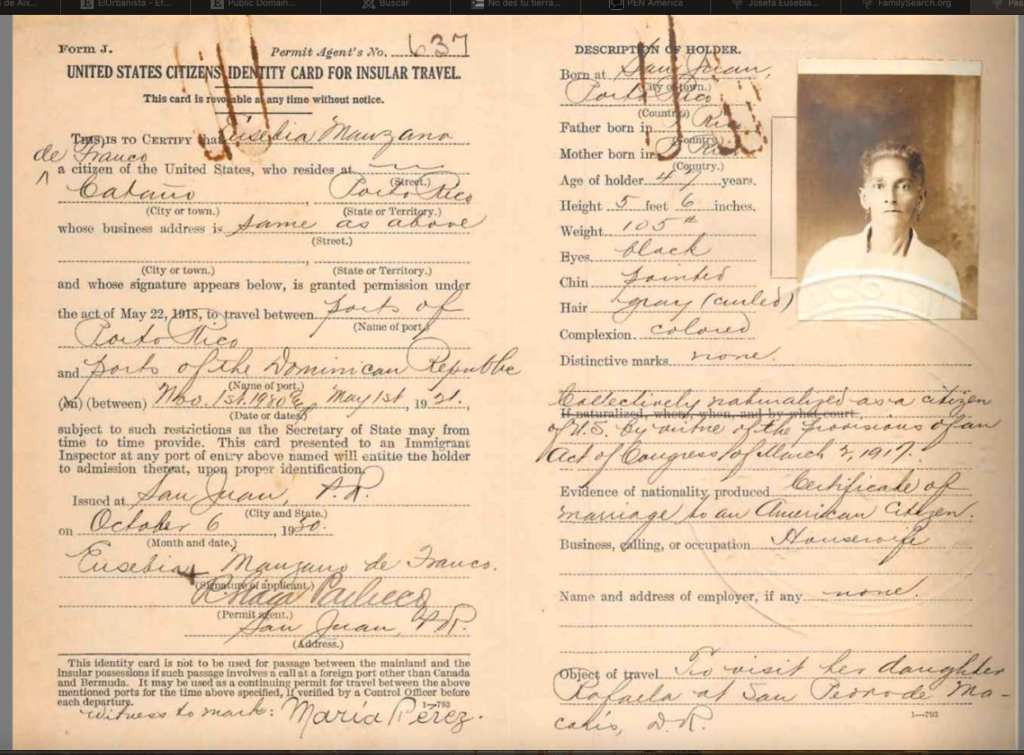 ElUrbanista - Et...
Public Domain...
Buscar
No des tu tierra...
PEN America
Josefa Eusebia...
FamilySearch.org
Form J.
Permit Agent's No. 637
UNITED STATES CITIZENS IDENTITY CARD FOR INSULAR TRAVEL.
This card is revokable at any time without notice.
THIS IS TO CERTIFY that Eusebia Manzano
de Franco
a citizen of the United States, who resides at
(Street.)
Cataño, Porto Rico
(City or town.) (State or Territory.)
whose business address is same as above
(Street.)
(City or town.) (State or Territory.)
and whose signature appears below, is granted permission under
the act of May 22, 1918, to travel between ports of
(Name of port)
Porto Rico
and ports of the Dominican Republic
(Name of port.)
(on) (between) Nov. 1st. May 1st, 1921.
(Date or dates)
subject to such restrictions as the Secretary of State may from
time to time provide. This card presented to an Immigrant
Inspector at any port of entry above named will entitle the holder
to admission thereat, upon proper identification.
Issued at San Juan, P.R.
(City and State.)
on October 6, 19
(Month and date.)
Eusebia Manzano de Franco.
(Signature of applicant.)
Pacheco
(Permit agent.)
San Juan, P.R.
(Address.)
This identity card is not to be used for passage between the mainland and the
insular possessions if such passage involves a call at a foreign port other than Canada
and Bermuda. It may be used as a continuing permit for travel between the above
mentioned ports for the time above specified, if verified by a Control Officer before
each departure. 1—793
Witness to mark: María Pérez.
DESCRIPTION OF HOLDER.
Born at San Juan,
(City or town.)
Porto Rico
(Country)
Father born in
(Country.)
Mother born in
(Country.)
Age of holder 47 years.
Height 5 feet 6 inches.
Weight 105 #
Eyes black
Chin pointed
Hair gray (curled)
Complexion colored
Distinctive marks none.
Collectively naturalized as a citizen
If naturalized, where, when, and by what court
of U.S. by virtue of the provisions of an
Act of Congress of March 2, 1917.
Evidence of nationality produced Certificate of
marriage to an American Citizen.
Business, calling, or occupation Housewife
Name and address of employer, if any none.
Object of travel To visit her daughter
Rafaela at San Pedro de Ma-
coris, D.R.
1—793